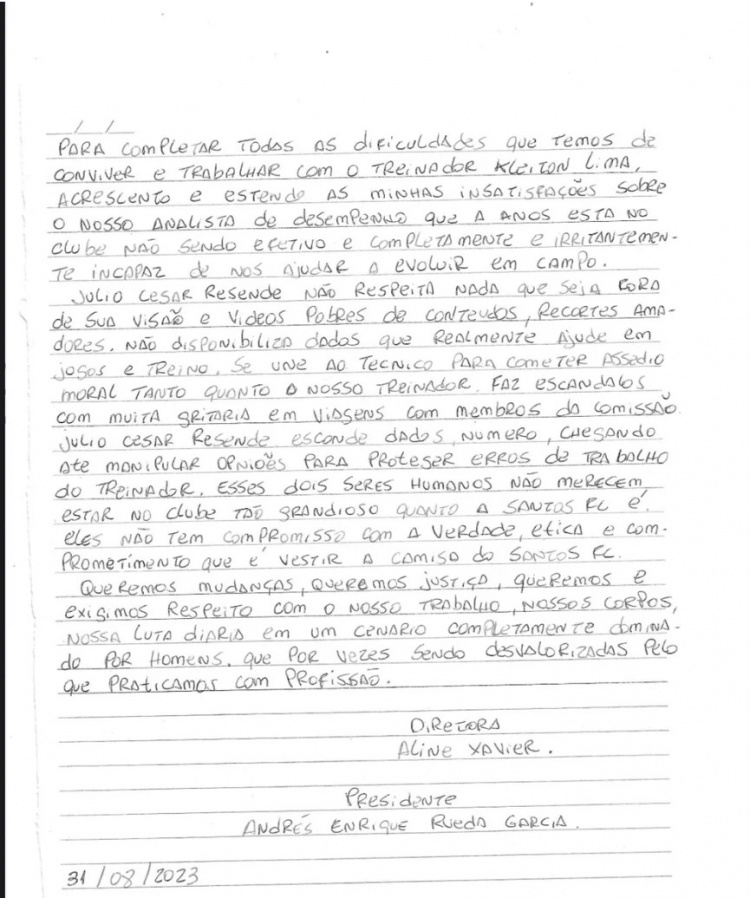 __/__/__
PARA COMPLETAR TODAS AS dificuldades que temos de
CONVIVER e TRABALHAR com o TREINADOR KLEITON LIMA,
ACRESCENTO e ESTENDO AS MINHAS INSATISFAÇÕES SOBRE
O NOSSO ANALISTA de desempenho que A ANOS ESTA NO
clube NÃO sendo efetivo e completamente e IRRITANTEMEN-
TE INCAPAZ de NOS AJUDAR A evoluir em campo.
JULIO CESAR Resende NÃO RESPEITA NADA que seja FORA
de SUA VISÃO e Videos PObres de CONTEUDOS, RECORTES AMA-
DORES. NÃO disponibiliza dados que REALMENTE Ajude em
jogos e TREINO. Se UNE AO TECNICO PARA COMETER ASSEDIO
MORAL TANTO QUANTO O NOSSO TREINADOR. FAZ escandalos
com muita gritaria em viagens com membros da comissão.
JULIO CESAR Resende esconde dados, NUMERO, CHEGANDO
ate MANIPULAR OPNIÕES PARA PROTEGER ERROS de TRABALHO
do TREINADOR. ESSES dois SERES HUMANOS NÃO MERECEM
ESTAR NO clube TÃO GRANDIOSO QUANTO A SANTOS FC é.
eles NÃO TEM COMPROMISSO COM A Verdade, etica e com-
PROMETIMENTO que é VESTIR A CAMISA do SANTOS FC.
Queremos mudanças, queremos justiça, queremos e
exigimos Respeito com o NOSSO TRABALHO, NOSSOS CORPOS,
NOSSA LUTA diARIA em um CENARIO completamente domina-
do POR Homens, que POR VEZES sendo desvalorizadas Pelo
que PRATICAMOS com PROFISSÃO.
DIRETORA
ALINE XAVIER.
Presidente
ANDRÉS ENRIQUE RUEDA GARCIA.
31/08/2023